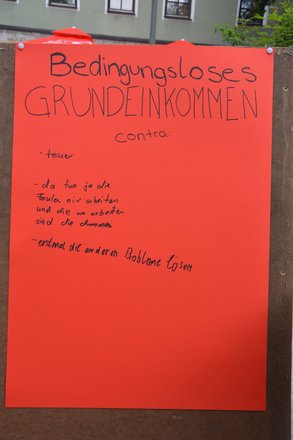 Bedingungsloses
GRUNDEINKOMMEN
contra:
- teuer
- da tun ja die
Faulen nix arbeiten
und die wo arbeiten
sind die dummen
- erstmal die anderen Probleme lösen